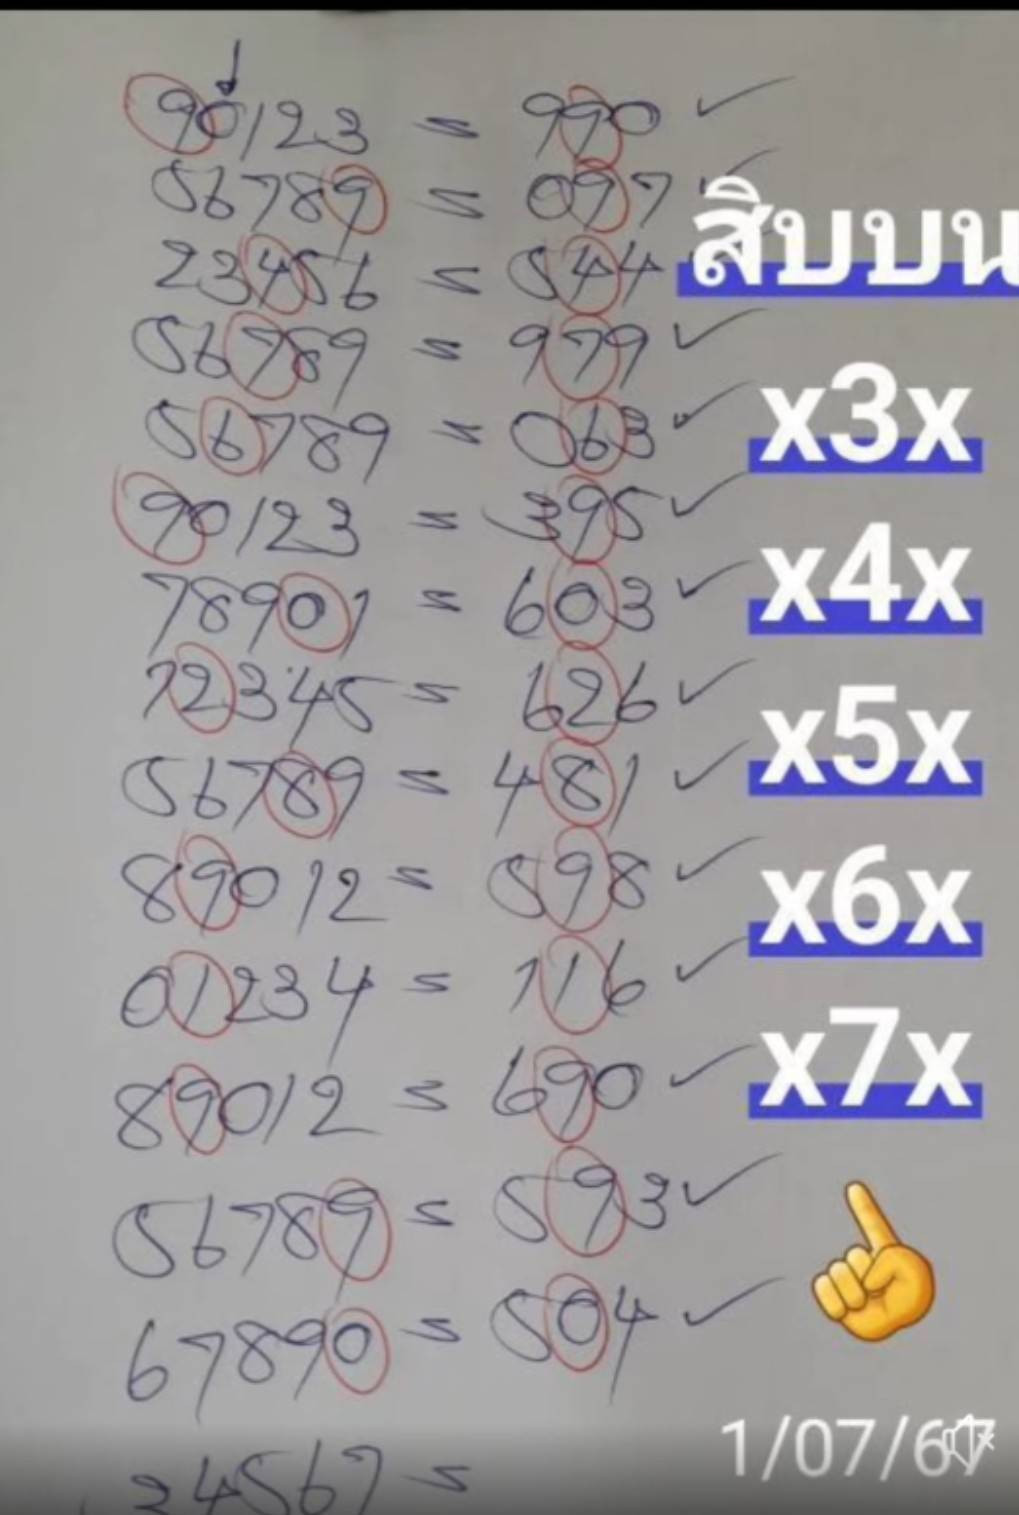 90123 = 990
56789 = 097
สิบบน
23456 = 544
56789 = 979
x3x
56789 = 063
90123 = 395
x4x
78901 = 603
12345 = 626
x5x
56789 = 481
89012 = 598
x6x
01234 = 116
89012 = 690
x7x
56789 = 593
67890 = 504
1/07/67
34567 =